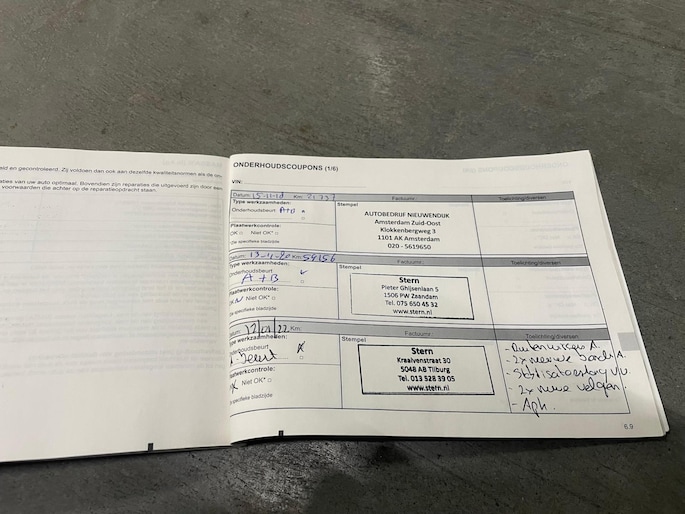 eld en gecontroleerd. Zij voldoen dan ook aan dezelfde kwaliteitsnormen als de on
aties van uw auto optimaal. Bovendien zijn reparaties die uitgevoerd zijn door een
voorwaarden die achter op de reparatieopdracht staan.
ONDERHOUDSCOUPONS (1/6)
VIN:
Datum: 15-11-18 Km: Factuurnr.: Toelichting/diversen:
Type werkzaamheden: Stempel
Onderhoudsbeurt A+B x
Plaatwerkcontrole:
OK □ Niet OK* □
*Zie specifieke bladzijde
AUTOBEDRIJF NIEUWENDIJK
Amsterdam Zuid-Oost
Klokkenbergweg 3
1101 AK Amsterdam
020 - 5619650
Datum: Km: 54156 Factuurnr.: Toelichting/diversen:
Type werkzaamheden: Stempel
Onderhoudsbeurt ✓
A + B □
Plaatwerkcontrole:
Niet OK* □
*Zie specifieke bladzijde
Stern
Pieter Ghijsenlaan 5
1506 PW Zaandam
Tel. 075 650 45 32
www.stern.nl
Datum: Km: Factuurnr.: Toelichting/diversen:
Type werkzaamheden: Stempel
Onderhoudsbeurt x
Beurt □
Plaatwerkcontrole:
x Niet OK* □
*Zie specifieke bladzijde
Stern
Kraaivenstraat 30
5048 AB Tilburg
Tel. 013 528 39 05
www.stern.nl
- Ruitenwissers A.
- 2x nieuwe banden A.
- Stabilisatorstang v/v.
- 2x nieuwe velgen.
- Apk.
6.9